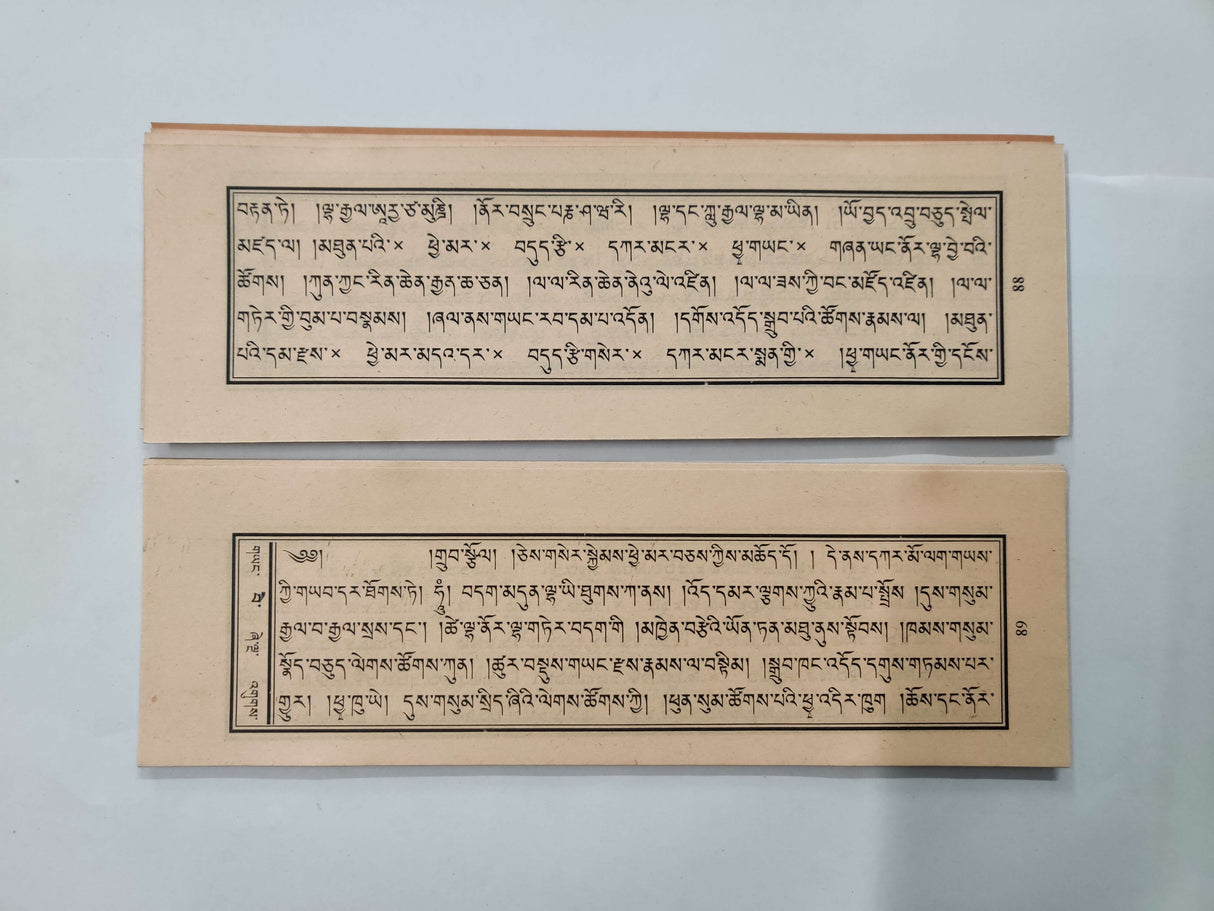 བརྟན་ཏེ། །ལྷ་རྒྱལ་ཨཱརྱ་ཙ་མུནྡྲི། །ནོར་བསྲུང་པཉྩ་ཤ་ཝ་རི། །ལྷ་དང་ཀླུ་རྒྱལ་ལྷ་མ་ཡིན། །ཡོ་བྱད་འབྲུ་བཅུད་སྤེལ་
མཛད་ལ། །མཐུན་པའི་× ཕྱེ་མར་× བདུད་རྩི་× དཀར་མངར་× ཕྱྭ་གཡང་× གཞན་ཡང་ནོར་ལྷ་བྱེ་བའི་
ཚོགས། །ཀུན་ཀྱང་རིན་ཆེན་རྒྱན་ཆ་ཅན། །ལ་ལ་རིན་ཆེན་ནེའུ་ལེ་འཛིན། །ལ་ལ་ཟས་ཀྱི་བང་མཛོད་འཛིན། །ལ་ལ་
གཏེར་གྱི་བུམ་པ་བསྣམས། །ཞལ་ནས་གཡང་རབ་དམ་པ་འདོན། །དགོས་འདོད་སྒྲུབ་པའི་ཚོགས་རྣམས་ལ། །མཐུན་
པའི་དམ་རྫས་× ཕྱེ་མར་མདའ་དར་× བདུད་རྩི་གསེར་× དཀར་མངར་སྨན་གྱི་× །ཕྱྭ་གཡང་ནོར་གྱི་དངོས་
88
གཡང་ འགུགས་
༄༅། །གྲུབ་སྩོལ། །ཅེས་གསེར་སྐྱེམས་ཕྱེ་མར་བཅས་ཀྱིས་མཆོད་དོ། ། དེ་ནས་དཀར་མོ་ལག་གཡས་
ཀྱི་གཡབ་དར་ཐོགས་ཏེ། ཧཱུྃ། བདག་མདུན་ལྷ་ཡི་ཐུགས་ཀ་ནས། །འོད་དམར་ལྕགས་ཀྱུའི་རྣམ་པ་སྤྲོས །དུས་གསུམ་
རྒྱལ་བ་རྒྱལ་སྲས་དང་། །ཚེ་ལྷ་ནོར་ལྷ་གཏེར་བདག་གི །མཁྱེན་བརྩེའི་ཡོན་ཏན་མཐུ་ནུས་སྟོབས། །ཁམས་གསུམ་
སྣོད་བཅུད་ལེགས་ཚོགས་ཀུན། །ཚུར་བསྡུས་གཡང་རྫས་རྣམས་ལ་བསྟིམ། །སྒྲུབ་ཁང་འདོད་དགུས་གཏམས་པར་
གྱུར། །ཕྱྭ་ཁུ་ཡེ། དུས་གསུམ་སྲིད་ཞིའི་ལེགས་ཚོགས་ཀྱི། །ཕུན་སུམ་ཚོགས་པའི་ཕྱྭ་འདིར་ཁུག །ཆོས་དང་ནོར་
68